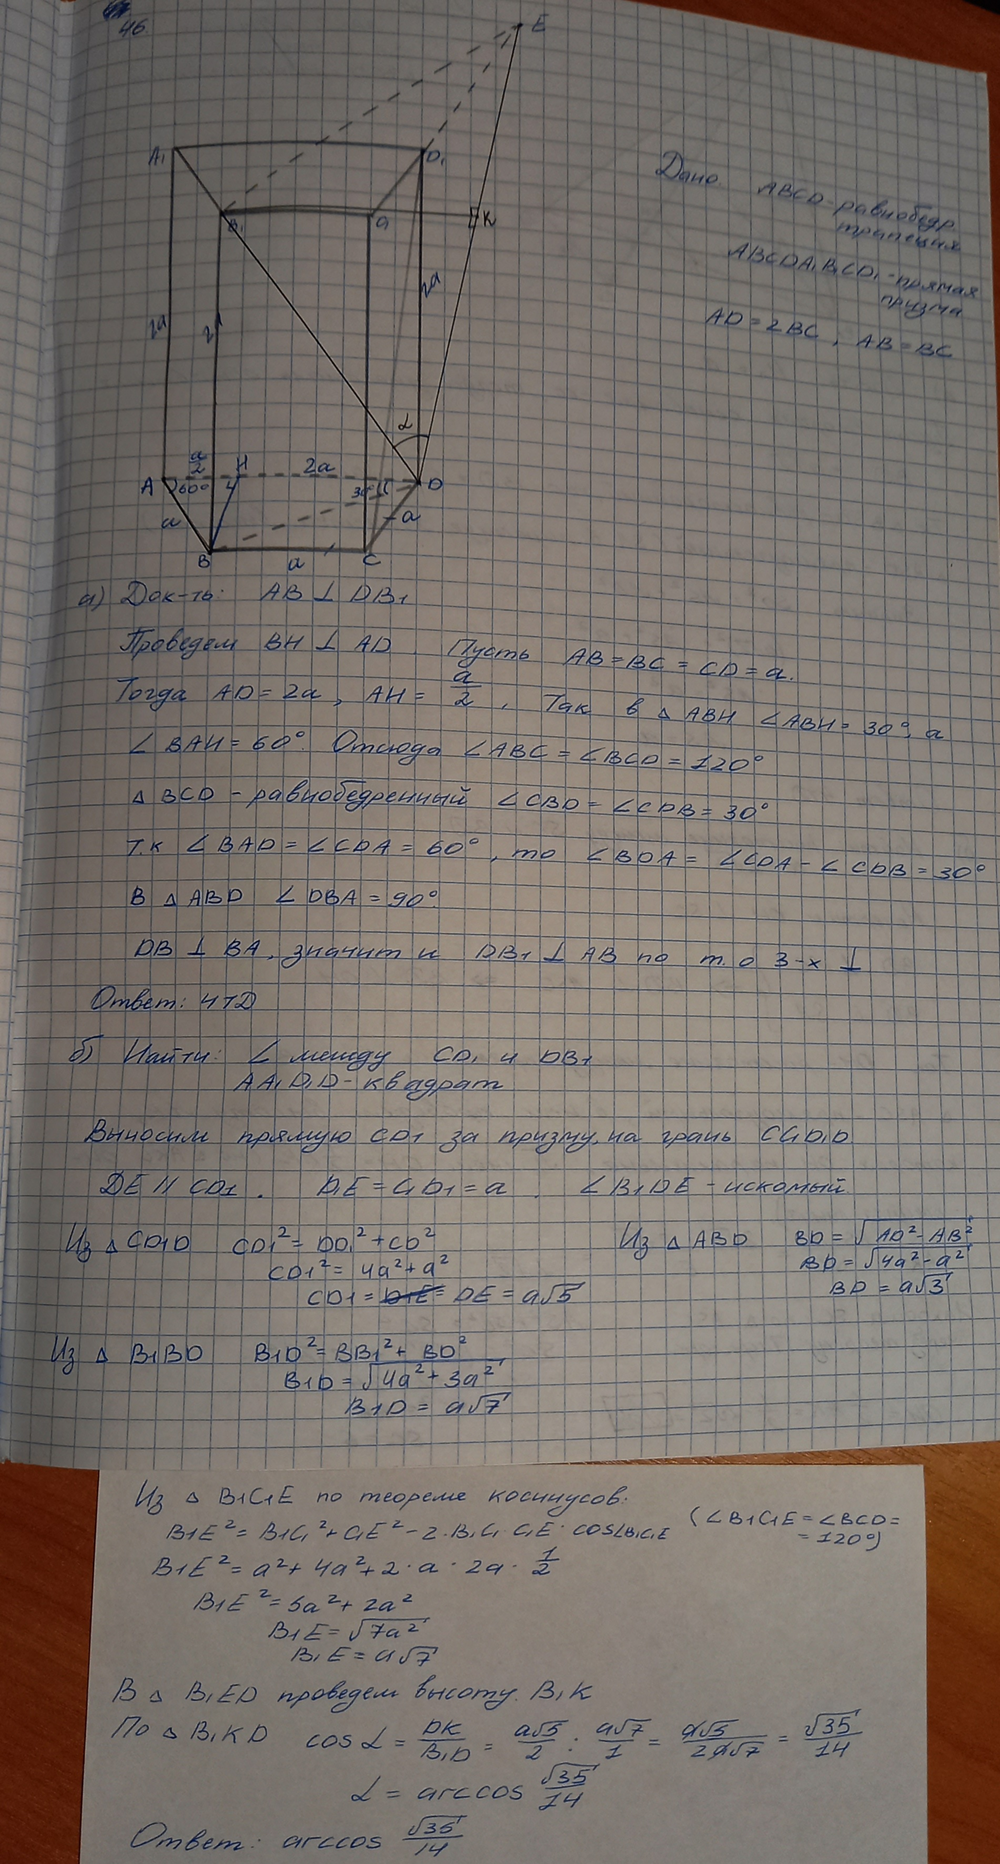 46
E
A₁
D₁
B₁
C₁
K
2a
2a
2a
α
a/2
H
2a
A
60°
30°
D
a
a
B
a
C
Дано. ABCD - равнобедр.
трапеция
ABCDA₁B₁C₁D₁ - прямая
призма
AD = 2BC, AB = BC
а) Док-ть: AB ⊥ DB₁
Проведем BH ⊥ AD. Пусть AB = BC = CD = a.
Тогда AD = 2a, AH = a/2. Так в △ ABH ∠ABH = 30°, а
∠ BAH = 60°. Отсюда ∠ABC = ∠BCD = 120°
△ BCD - равнобедренный ∠CBD = ∠CDB = 30°
т.к ∠BAD = ∠CDA = 60°, то ∠BDA = ∠CDA - ∠CDB = 30°
В △ ABD ∠DBA = 90°.
DB ⊥ BA, значит и DB₁ ⊥ AB по т. о 3-х ⊥
Ответ: ЧТД
б) Найти: ∠ между CD₁ и DB₁
AA₁D₁D - квадрат
Выносим прямую CD₁ за призму, на грань CC₁D₁D
DE || CD₁. D₁E = C₁D₁ = a. ∠B₁DE - искомый
Из △ CD₁D CD₁² = DD₁² + CD²
CD₁² = 4a² + a²
CD₁ = DE = a√5
Из △ ABD BD = √AD² - AB²
BD = √4a² - a²
BD = a√3
Из △ B₁BD B₁D² = BB₁² + BD²
B₁D = √4a² + 3a²
B₁D = a√7
Из △ B₁C₁E по теореме косинусов:
B₁E² = B₁C₁² + C₁E² - 2·B₁C₁·C₁E·cos∠B₁C₁E (∠B₁C₁E = ∠BCD =
= 120°)
B₁E² = a² + 4a² + 2·a·2a·1/2
B₁E² = 5a² + 2a²
B₁E = √7a²
B₁E = a√7
В △ B₁ED проведем высоту B₁K
По △ B₁KD cos α = DK/B₁D = a√5/2 : a√7/1 = a√5/2a√7 = √35/14
α = arccos √35/14
Ответ: arccos √35/14